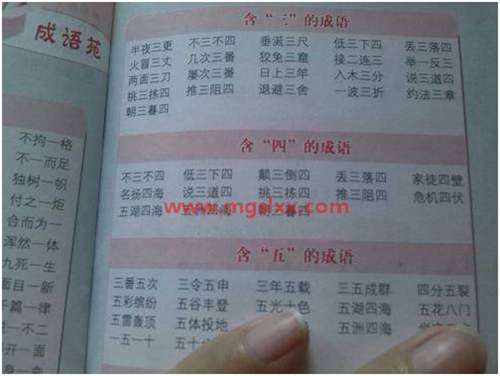 成语苑
不拘一格
不一而足
独树一帜
付之一炬
合而为一
浑然一体
九死一生
面目一新
千篇一律
不一不二
开一面
一命
含“三”的成语
半夜三更 不三不四 垂涎三尺 低三下四 丢三落四
火冒三丈 几次三番 狡兔三窟 接二连三 举一反三
两面三刀 屡次三番 日上三竿 入木三分 说三道四
挑三拣四 推三阻四 退避三舍 一波三折 约法三章
朝三暮四
含“四”的成语
不三不四 低三下四 颠三倒四 丢三落四 家徒四壁
名扬四海 说三道四 挑三拣四 推三阻四 危机四伏
五湖四海 五洲四海 朝三暮四
www.mgslxx.com
含“五”的成语
三番五次 三令五申 三年五载 三五成群 四分五裂
五彩缤纷 五谷丰登 五光十色 五湖四海 五花八门
五雷轰顶 五体投地 五洲四海
一五一十 五十